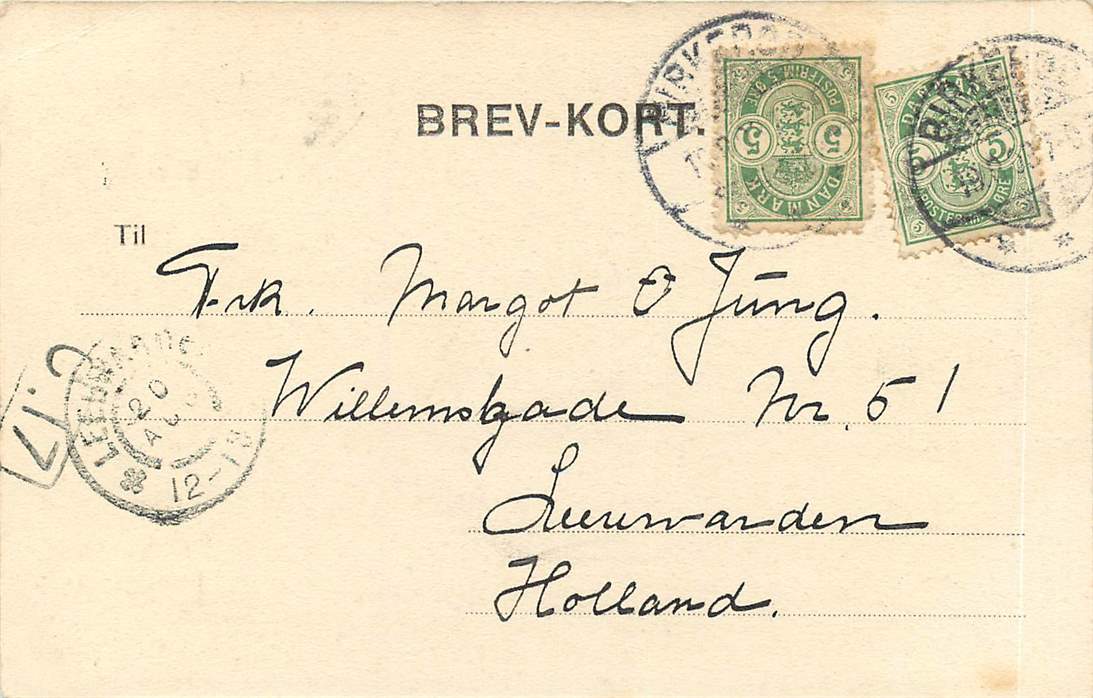 BREV-KORT.
BIRKERØD
DANMARK
POSTFRIM. 5 ØRE
5 5
BIRKERØD
DANMARK
POSTFRIM. 5 ØRE
5 5
Til
Frk. Margot Ø Jüng.
Willemskade Nr. 51
Leeuwarden
Holland.
LEEUWARDEN
20 AUG
12-1N